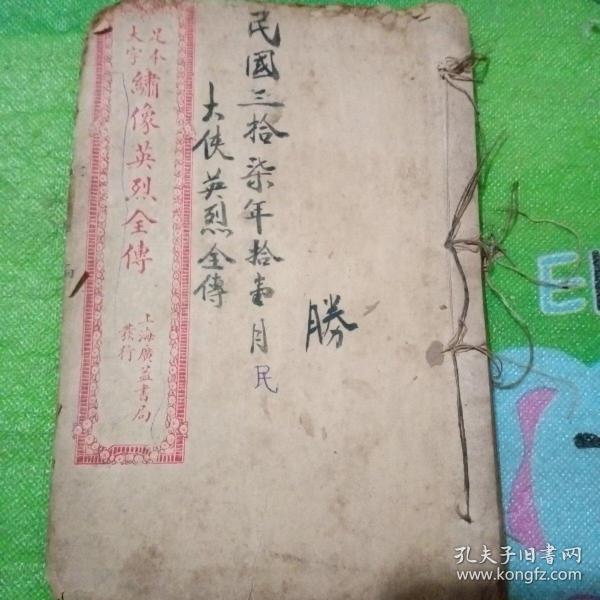 民國三拾柒年拾壹月民
大俠英烈全傳
勝
足本
大字
繡像英烈全傳
上海廣益書局
發行
EL
孔夫子旧书网
www.kongfz.com